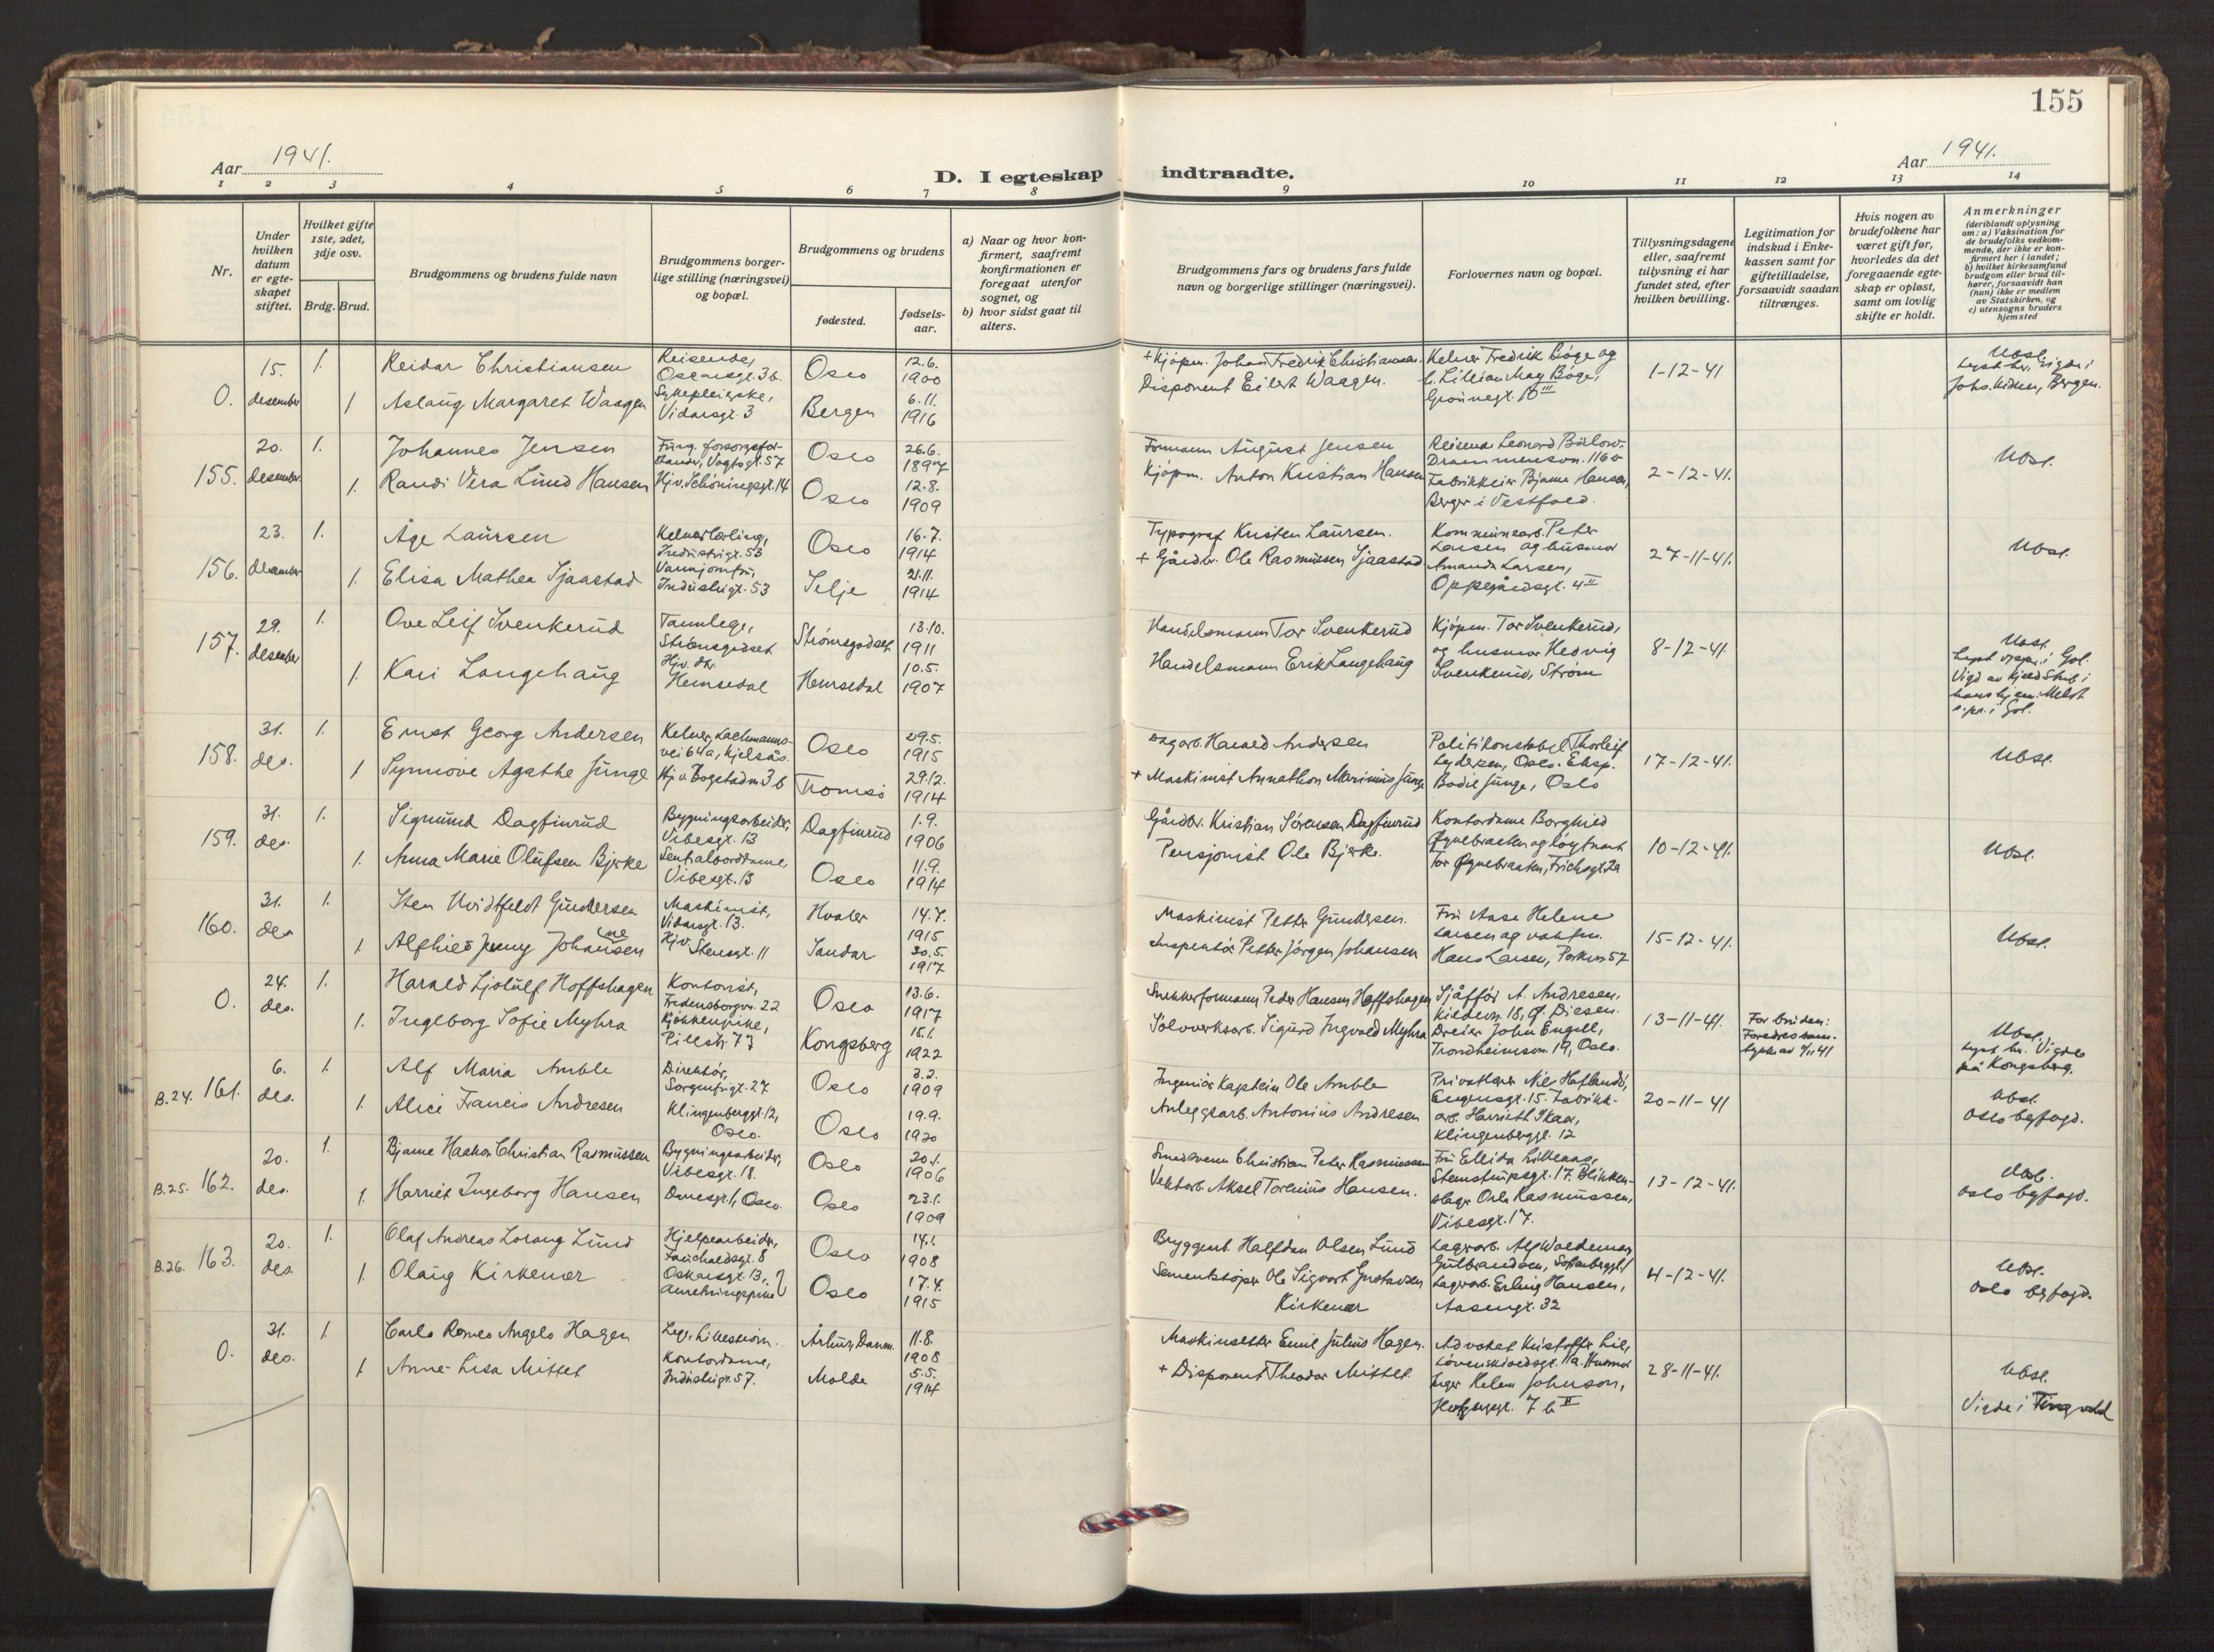 155
Aar 1941.
D. I egteskap indtraadte.
Aar 1941.
1 2 3 4 5 6 7 8 9 10 11 12 13 14
Nr.
Under hvilken datum er egteskapet stiftet.
Hvilket gifte 1ste, 2det, 3dje osv.
Brdg. Brud.
Brudgommens og brudens fulde navn
Brudgommens borgerlige stilling (næringsvei) og bopæl.
Brudgommens og brudens
fødested.
fødselsaar.
a) Naar og hvor konfirmert, saafremt konfirmationen er foregaat utenfor sognet, og
b) hvor sidst gaat til alters.
Brudgommens fars og brudens fars fulde navn og borgerlige stillinger (næringsvei).
Forlovernes navn og bopæl.
Tillysningsdagene eller, saafremt tillysning ei har fundet sted, efter hvilken bevilling.
Legitimation for indskud i Enkekassen samt for giftetilladelse, forsaavidt saadan tiltrænges.
Hvis nogen av brudefolkene har været gift før, hvorledes da det foregaaende egteskap er opløst, samt om lovlig skifte er holdt.
Anmerkninger (deriblandt oplysning om: a) Vaksination for de brudefolks vedkommende, der ikke er konfirmert her i landet; b) hvilket kirkesamfund brudgom eller brud tilhører, forsaavidt han (hun) ikke er medlem av Statskirken, og c) utensogns bruders hjemsted
0. 15. desember 1. Reidar Christiansen Reisende, Oscarsgt. 3b. Oslo 12.6. 1900 + Kjøpm. Johan Fredrik Christiansen. Kelner Fredrik Bøge og
1 Aslaug Margaret Waagen Sykepleierske, Vidarsgt. 3 Bergen 6.11. 1916 Disponent Eilert Waagen. f. Lillian May Bøge, Grønnegt. 10 III 1-12-41 Ubsl. Lyst her. Johs. kirken, Bergen.
155. 20. desember 1. Johannes Jensen Vogtsgt. 57 Oslo 26.6. 1897 Formann August Jensen Reisende Leonard Bülow, Drammensvn. 116
1. Randi Vera Lund Hansen Hj.v. Schøningsgt. 14 Oslo 12.8. 1909 Kjøpm. Anton Kristian Hansen Fabrikkeier Bjarne Hansen, Berger i Vestfold. 2-12-41. Ubsl.
156. 23. desember 1. Åge Laursen Kelnerlærling, Industrigt. 53 Oslo 16.7. 1914 Typograf Kristen Laursen. Kommunearb. Peter Larsen og husmor
1. Elisa Mathea Sjaastad Vannjomfru, Industrigt. 53 Selje 21.11. 1914 + Gårdbr. Ole Rasmussen Sjaastad Amanda Larsen, Oppegårdsgt. 4 II 27-11-41. Ubsl.
157. 29. desember 1. Ove Leif Svenkerud Tannlege, Strømsgodset Strømsgodset 13.10. 1911 Handelsmann Tor Svenkerud Kjøpm. Tor Svenkerud, og husmor Hedvig
1. Kari Langehaug Hj.v. Hemsedal Hemsedal 10.5. 1907 Handelsmann Erik Langehaug Svenkerud, Strøm 8-12-41. Ubsl. Lyst i Gol. Vigd av i hans hjem. Meldt s.pr. i Gol.
158. 31. des. 1. Ernst Georg Andersen Kelner, Lachmannsvei 64a, Kjelsås Oslo 29.5. 1915 Dagarb. Harald Andersen Politikonstabel Thorleif
1 Synnøve Agathe Junge Hj.v. Bogstadvn. 3b Tromsø 29.12. 1914 + Maskinist Annathon Marinius Junge Lydersen, Oslo. Eksp. Bodil Junge, Oslo 17-12-41. Ubsl.
159. 31. des. 1. Sigmund Dagfinrud Bygningsarbeider, Vibesgt. 13 Dagfinrud 1.9. 1906 Gårdbr. Kristian Sørensen Dagfinrud Kontordame Borghild
1. Anna Marie Olufsen Bjerke Sentralborddame, Vibesgt. 13 Oslo 11.9. 1914 Pensjonist Ole Bjerke. Øynebraaten og løytnant Tor Øynebraaten, Frichsgt. 2a 10-12-41. Ubsl.
160. 31. des 1. Sten Hvidtfeldt Gundersen Maskinist, Vidarsgt. 13. Hvaler 14.7. 1915 Maskinist Petter Gundersen. Fru Aase Helene
1 Alfhild Jenny Johansen Hj.v. Stensgt. 11 Sandar 30.5. 1917 Inspektør Petter Jørgen Johansen Larsen og vaktm. Hans Larsen, Parkvn 57 15-12-41. Ubsl.
0. 24. des. 1. Harald Ljotulf Hoffshagen Kontorist, Fredensborgvn. 22 Oslo 13.6. 1917 Snekkerformann Peder Hansen Hoffshagen Sjåffør A. Andresen,
1. Ingeborg Sofie Myhra Kjøkkenpike, Pilestr. 77 Kongsberg 15.1. 1922 Sølvverksarb. Sigurd Ingvald Myhra Dreier John Engell, Trondheimsvn. 19, Oslo. 13-11-41. For bruden: Ubsl. Lyst her. Vigde på Kongsberg.
B.24. 161. 6. des. 1. Alf Maria Amble Direktør, Sorgenfrigt. 27 Oslo 3.2. 1909 Ingeniør Kaptein Ole Amble Privatlærer Nils Hafland,
1. Alice Francis Andresen Klingenberggt. 12, Oslo. Oslo 19.9. 1920 Anleggsarb. Antonius Andresen Eugensgt. 15. Fabrikkarb. Harrieth Skar, Klingenberggt. 12 20-11-41 Ubsl. Oslo byfogd.
B.25. 162. 20. des. 1. Bjarne Haakon Christian Rasmussen Bygningsarbeider, Vibesgt. 18. Oslo 20.1. 1906 Smedsvenn Christian Peter Rasmussen Fru Ellida Lilleaas,
1. Harriet Ingeborg Hansen Danesgt. 1, Oslo. Oslo 23.1. 1909 Vektarb. Aksel Torenius Hansen. Stenstrupsgt. 17. Blikkenslager Rasmussen, Vibesgt. 17. 13-12-41. Ubsl. Oslo byfogd.
B.26. 163. 20. des. 1. Olaf Andreas Lorang Lund Hjelpearbeider, Fauchaldsgt. 8 Oslo 14.1. 1908 Bryggearb. Halfdan Olsen Lund Lagerarb. Alf Woldemar
1. Olaug Kirkemor Oskarsgt. 13, Oslo 17.4. 1915 Sementstøper Ole Sigvart Gustavsen Kirkemor Gulbrandsen, Sofienberggt. 1 Lagerarb. Erling Hansen, Aasengt. 32 4-12-41. Ubsl. Oslo byfogd.
0. 31. des. 1. Carlo Romeo Angelo Hagen Lege, Lillestrøm. Århus, Danm. 11.8. 1908 Maskinsetter Emil Julius Hagen. Advokat Kristoffer Lie,
1. Anne-Lisa Mittet Kontordame, Industrigt. 57. Molde 5.5. 1914 + Disponent Theodor Mittet. Løvenskioldsgt. 11a. Husmor Inger Helen Johnson, 7 b II 28-11-41. Ubsl. Vigde i Tingvold